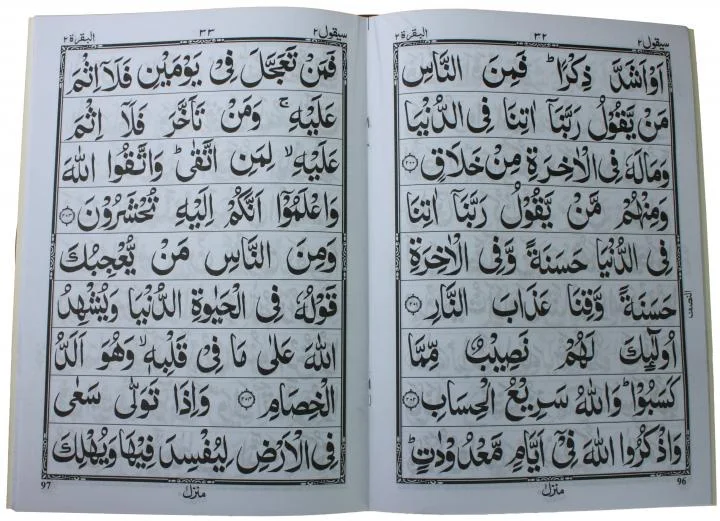 سیقول ٢
٣٢
البقرة ٢
اَوْ اَشَدَّ ذِكْرًا ؕ فَمِنَ النَّاسِ
مَنْ يَّقُوْلُ رَبَّنَاۤ اٰتِنَا فِى الدُّنْيَا
وَمَا لَهٗ فِى الْاٰخِرَةِ مِنْ خَلَاقٍ ﴿٢٠٠﴾
وَمِنْهُمْ مَّنْ يَّقُوْلُ رَبَّنَاۤ اٰتِنَا
فِى الدُّنْيَا حَسَنَةً وَّفِى الْاٰخِرَةِ
حَسَنَةً وَّقِنَا عَذَابَ النَّارِ ﴿٢٠١﴾
اُولٰٓئِكَ لَهُمْ نَصِيْبٌ مِّمَّا
كَسَبُوْا ؕ وَاللّٰهُ سَرِيْعُ الْحِسَابِ ﴿٢٠٢﴾
وَاذْكُرُوا اللّٰهَ فِىْۤ اَيَّامٍ مَّعْدُوْدٰتٍ ؕ
النصف
منزل
96
سیقول ٢
٣٣
البقرة ٢
فَمَنْ تَعَجَّلَ فِىْ يَوْمَيْنِ فَلَاۤ اِثْمَ
عَلَيْهِ ۚ وَمَنْ تَاَخَّرَ فَلَاۤ اِثْمَ
عَلَيْهِ ۙ لِمَنِ اتَّقٰى ؕ وَاتَّقُوا اللّٰهَ
وَاعْلَمُوْۤا اَنَّكُمْ اِلَيْهِ تُحْشَرُوْنَ ﴿٢٠٣﴾
وَمِنَ النَّاسِ مَنْ يُّعْجِبُكَ
قَوْلُهٗ فِى الْحَيٰوةِ الدُّنْيَا وَيُشْهِدُ
اللّٰهَ عَلٰى مَا فِىْ قَلْبِهٖ ۙ وَهُوَ اَلَدُّ
الْخِصَامِ ﴿٢٠٤﴾ وَاِذَا تَوَلّٰى سَعٰى
فِى الْاَرْضِ لِيُفْسِدَ فِيْهَا وَيُهْلِكَ
منزل
97